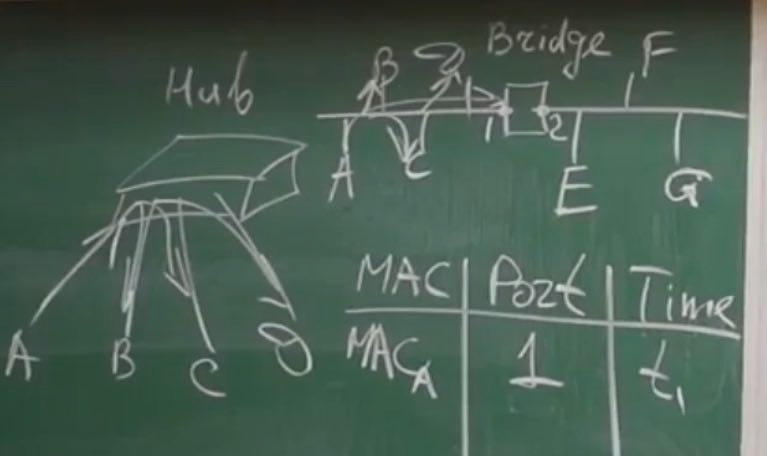 Hub
A B C D
Bridge
B D F
1 2
A C E G
MAC Port Time
MAC_A 1 t₁